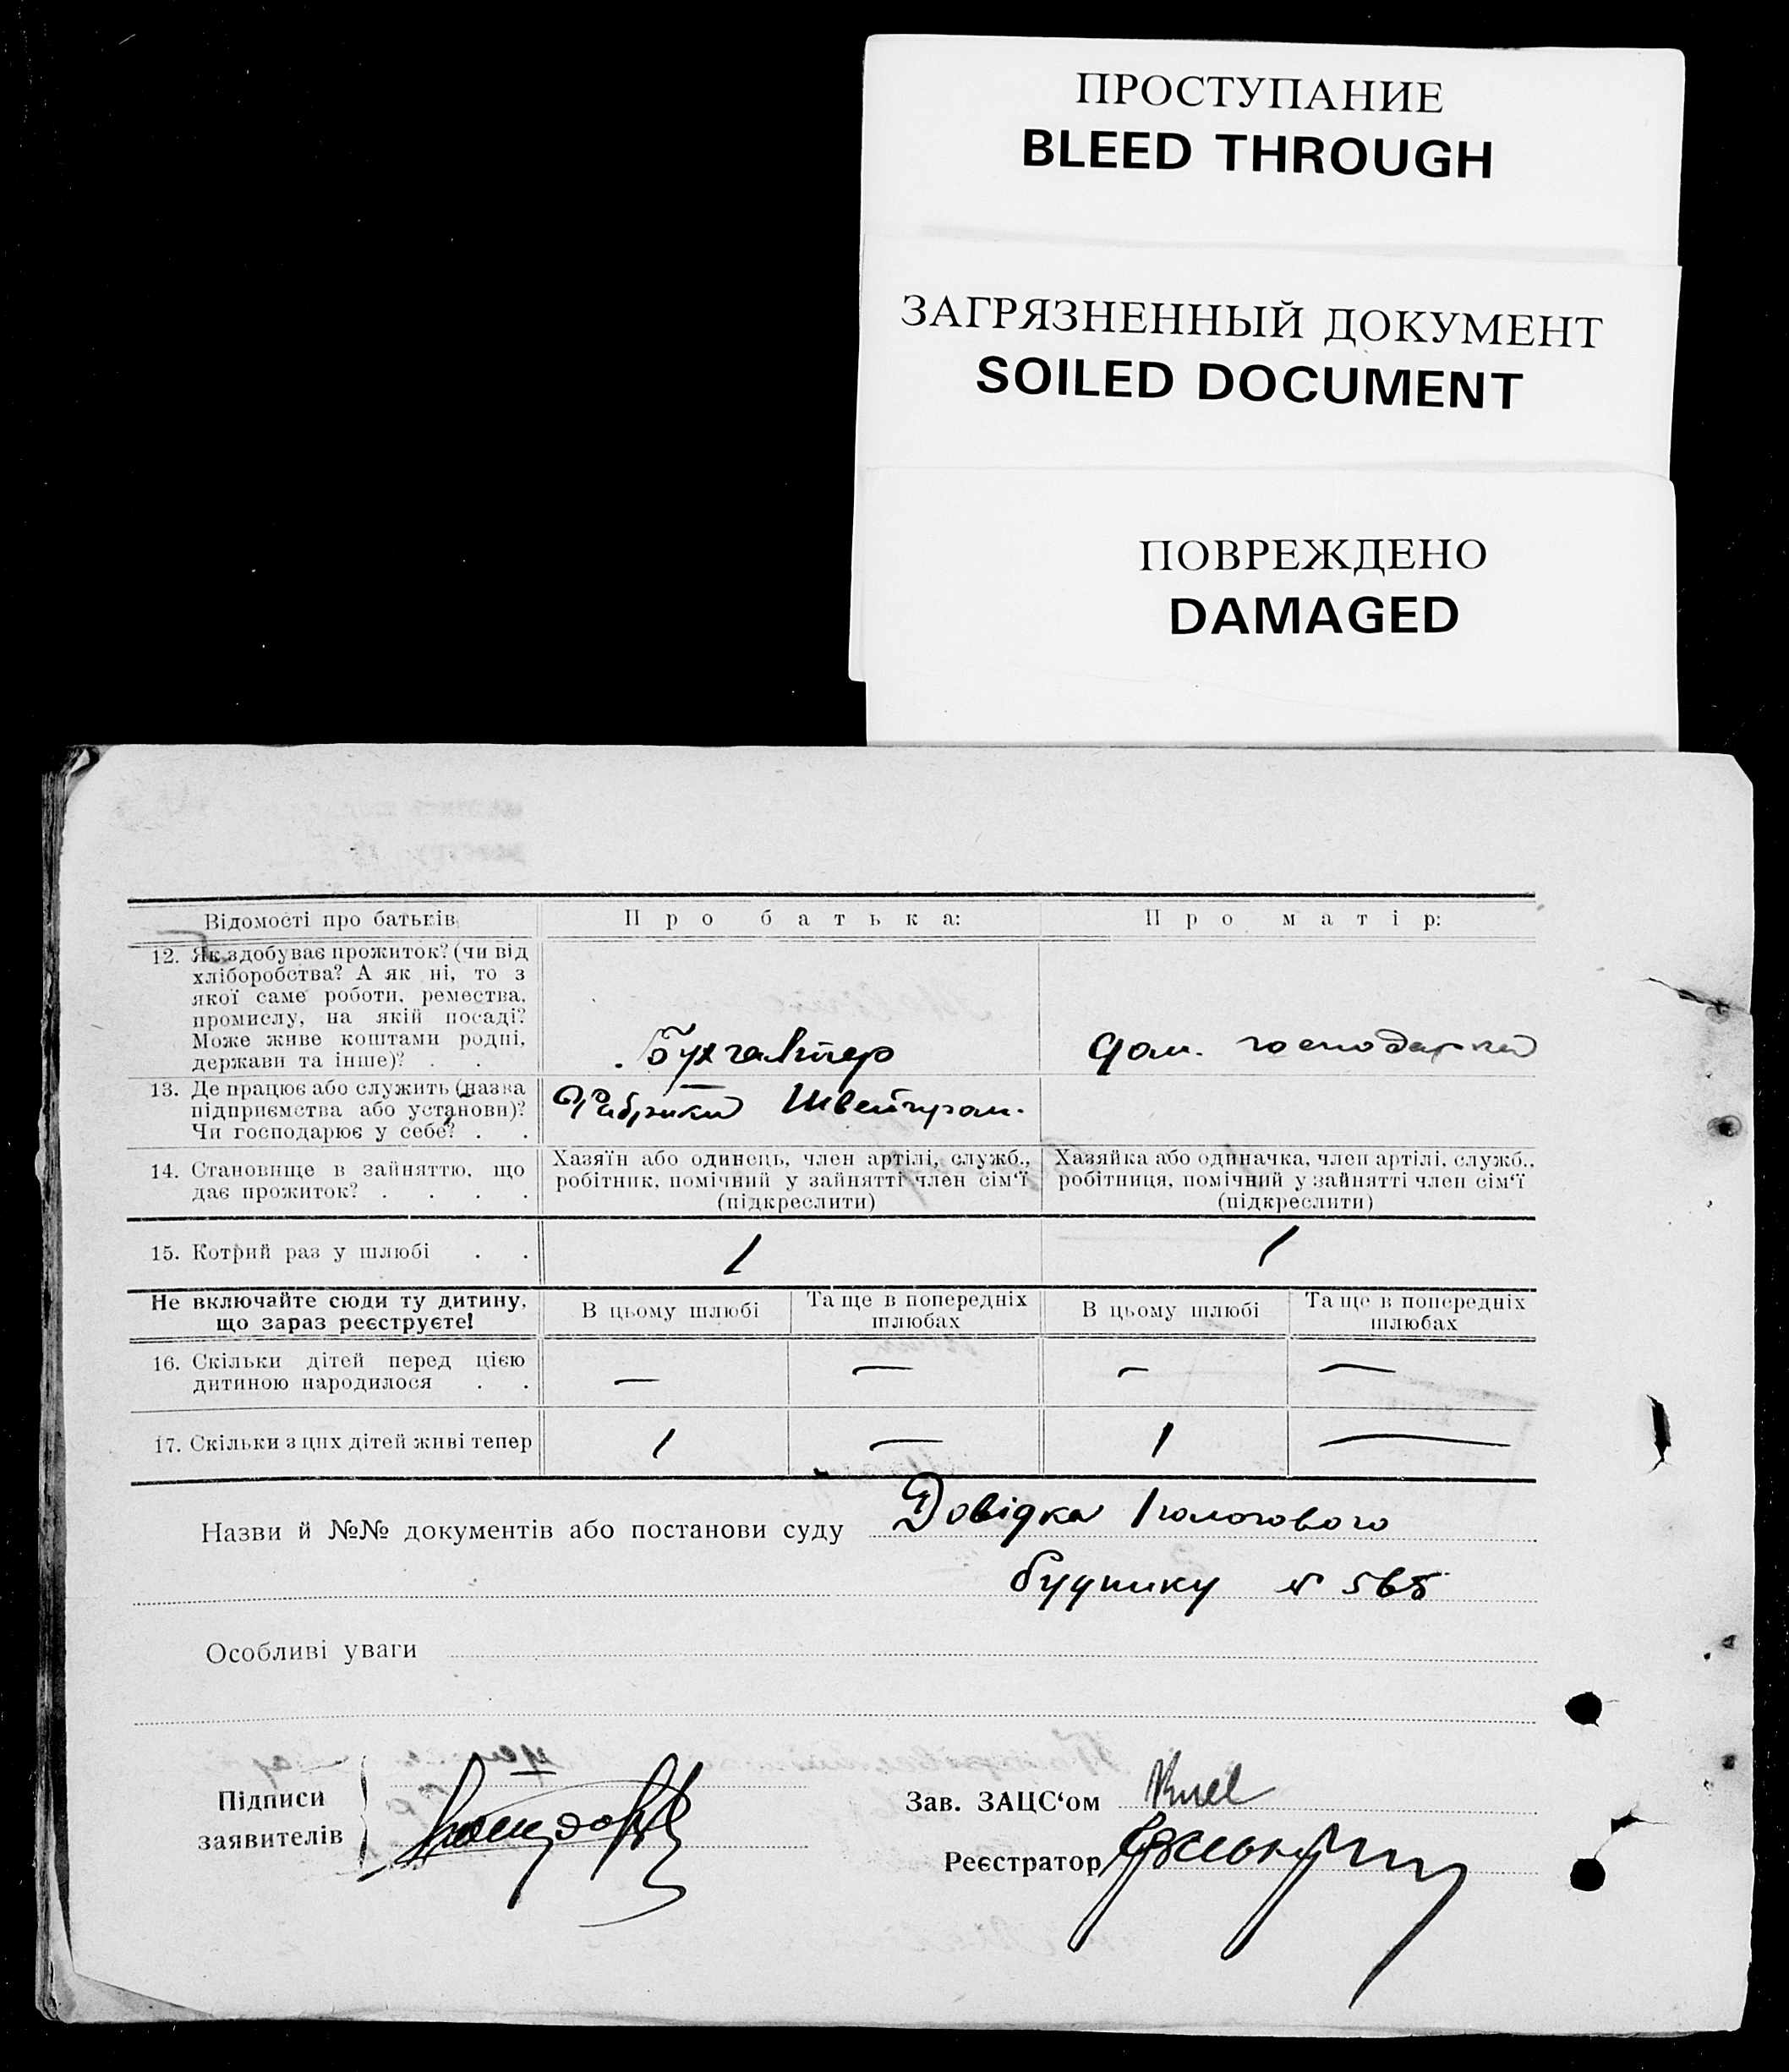 ПРОСТУПАНИЕ
BLEED THROUGH
ЗАГРЯЗНЕННЫЙ ДОКУМЕНТ
SOILED DOCUMENT
ПОВРЕЖДЕНО
DAMAGED
Відомості про батьків
Про батька:
Про матір:
12. Як здобуває прожиток? (чи від
хліборобства? А як ні, то з
якої саме роботи, ремества,
промислу, на якій посаді?
Може живе коштами родні,
держави та інше)? . .
Бухгалтер
Дом. господарка
13. Де працює або служить (назва
підприємства або установи)?
Чи господарює у себе? . .
Фабрики Швейпром.
14. Становище в зайняттю, що
дає прожиток? . . . .
Хазяїн або одинець, член артілі, служб.,
робітник, помічний у зайнятті член сім'ї
(підкреслити)
Хазяйка або одиначка, член артілі, служб.,
робітниця, помічний у зайнятті член сім'ї
(підкреслити)
15. Котрий раз у шлюбі . .
1
1
Не включайте сюди ту дитину,
що зараз реєструєте!
В цьому шлюбі
Та ще в попередніх
шлюбах
В цьому шлюбі
Та ще в попередніх
шлюбах
16. Скільки дітей перед цією
дитиною народилося . .
— — — —
17. Скільки з цих дітей живі тепер
1 — 1 —
Назви й №№ документів або постанови суду Довідка Пологового
будинку №
Особливі уваги
Підписи
заявителів
Зав. ЗАЦС'ом
Реєстратор